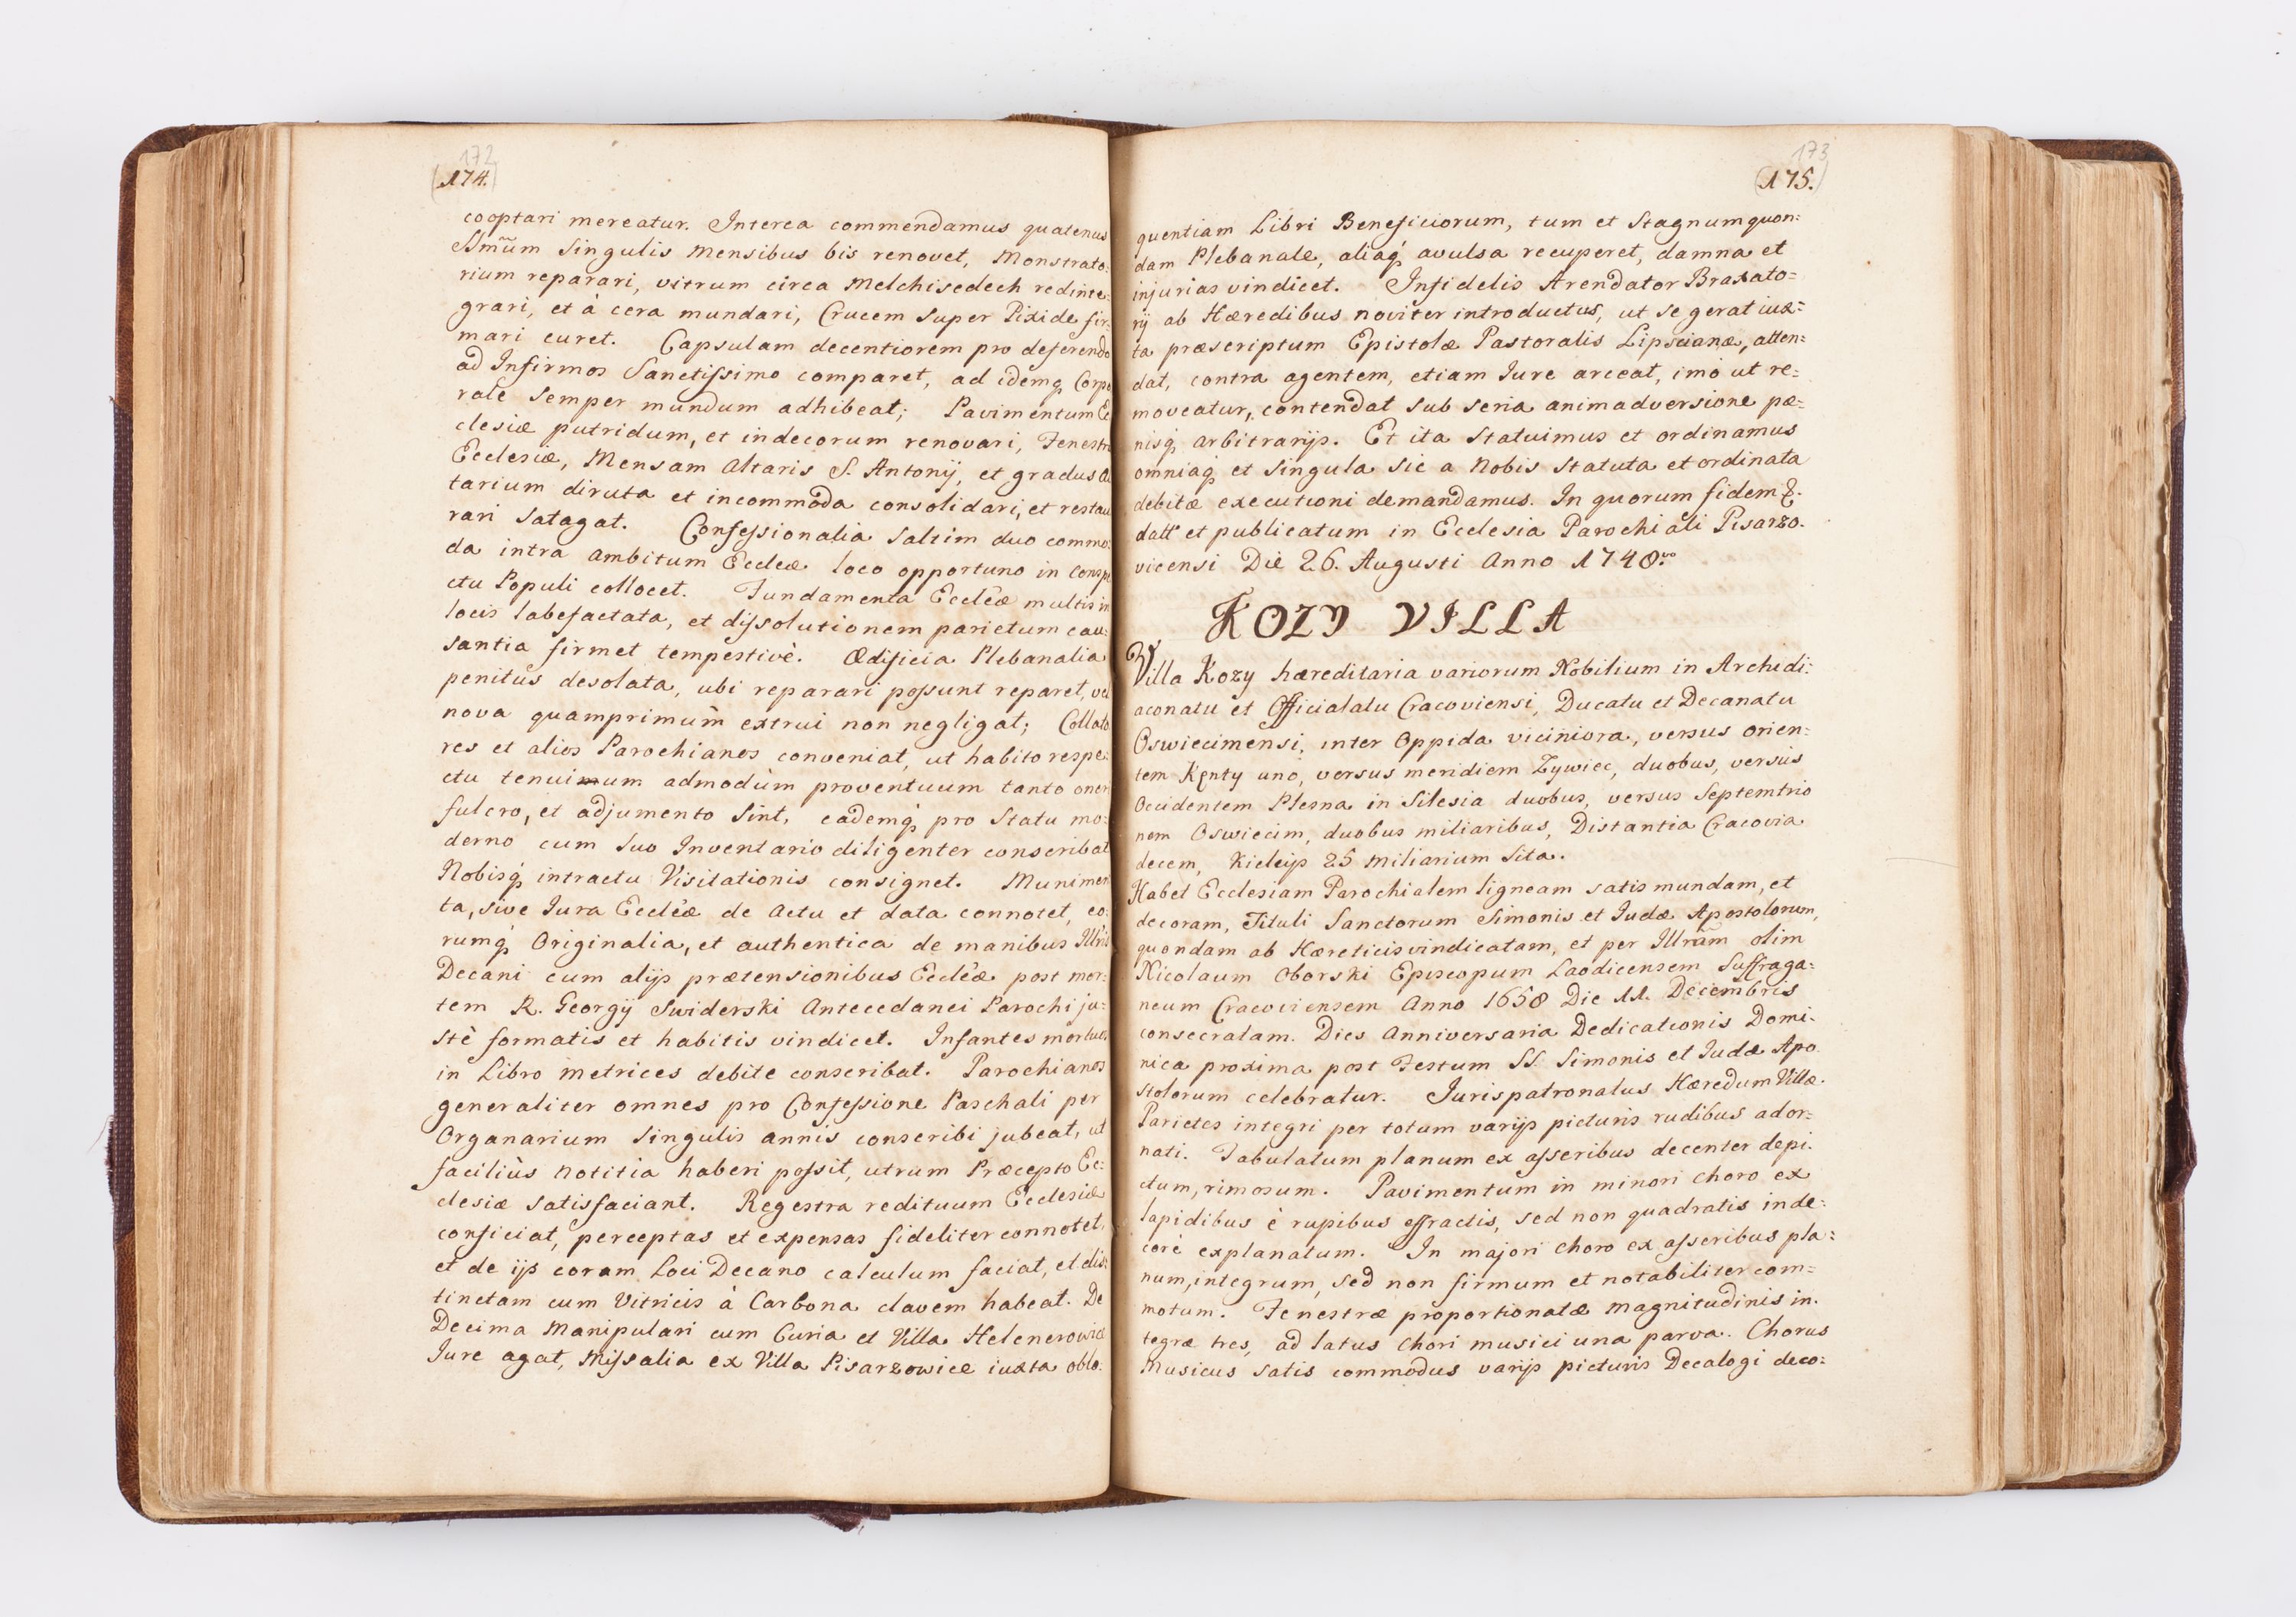 172
(174.)
cooptari mereatur. Interea commendamus quatenus
SSmũm singulis mensibus bis renovet, Monstrato:
rium reparari, vitrum circa Melchisedech redinte:
grari, et à cera mundari, Crucem super Pixide fir:
mari curet. Capsulam decentiorem pro deferendo
ad Infirmos Sanctissimo comparet, ad idemq́ Corpo
rale semper mundum adhibeat; Pavimentum Ec
clesiæ putridum, et indecorum renovari, Fenestr
Ecclesiæ, Mensam Altaris S. Antonij, et gradus Al
tarium diruta et incommoda consolidari, et restau
rari satagat. Confessionalia saltim duo commo:
da intra ambitum Eccleæ loco opportuno in conspe
ctu Populi collocet. Fundamenta Eccleæ multis in
locis labefactata, et dissolutionem parietum cau:
santia firmet tempestivè. Ædificia Plebanalia
penitùs desolata, ubi reparari possunt reparet, vel
nova quamprimùm extrui non negligat; Collato
res et alios Parochianos conveniat, ut habito respe:
ctu tenuium admodùm proventuum tanto oneri
fulcro, et adjumento sint, eademq́ pro statu mo:
derno cum suo Inventario diligenter conscribat
Nobisq́ intractu Visitationis consignet. Munimen
ta, sive Jura Eccleæ de Actu et data connotet, eo:
rumq́ Originalia, et authentica de manibus Illris
Decani cum alijs prætensionibus Eccleæ post mor:
tem R. Georgij Swiderski Antecedanei Parochi ju:
stè formatis et habitis vindicet. Infantes mortuos
in Libro Metrices debite conscribat. Parochianos
generaliter omnes pro Confessione Paschali per
Organarium singulis annis conscribi jubeat, ut
faciliùs notitia haberi possit, utrum Præcepto Ec:
clesiæ satisfaciant. Regestra redituum Ecclesiæ
conficiat, perceptas et expensas fideliter connotet,
et de ijs coram Loci Decano calculum faciat, et dis:
tinctam cum Vitricis à Carbona clavem habeat. De
Decima Manipulari cum Curia et Villa Helenerowice
Jure agat, Missalia ex Villa Pisarzowice iuxta oblo.
173
(175.)
quentiam Libri Beneficiorum, tum et Stagnum quon:
dam Plebanale, aliaq́ avulsa recuperet, damna et
injurias vindicet. Infidelis Arendator Braxato=
rij ab Hæredibus noviter introductus, ut se gerat iux=
ta præscriptum Epistolæ Pastoralis Lipscianæ, atten=
dat, contra agentem, etiam Jure arceat, imò ut re=
moveatur, contendat sub seria animadversione pæ=
nisq́ arbitrarijs. Et ita statuimus et ordinamus
omniaq́ et singula sic a Nobis statuta et ordinata
debitæ executioni demandamus. In quorum fidem &.
datt et publicatum in Ecclesia Parochiali Pisarzo.
vicensi Die 26. Augusti Anno 1748.vo
KOZY VILLA
Villa Kozy hæreditaria variorum Nobilium in Archidi:
aconatu et Officialatu Cracoviensi, Ducatu et Decanatu
Oswiecimensi, inter Oppida viciniora, versus orien:
tem Kęnty uno, versus meridiem Zywiec, duobus, versus
Occidentem Plesna in Silesia duobus, versus Septemtrio
nem Oswiecim, duobus miliaribus, Distantia Cracovia
decem, Kielcijs 25 miliarium sita.
Habet Ecclesiam Parochialem ligneam satis mundam, et
decoram, Tituli Sanctorum Simonis et Judæ Apostolorum,
quondam ab Hæreticis vindicatam, et per Illrãm olim
Nicolaum Oborski Episcopum Laodicensem Suffraga:
neum Cracoviensem Anno 1658 Die 11. Decembris
consecratam. Dies Anniversaria Dedicationis Domi:
nica proxima post Festum SS. Simonis et Judæ Apo
stolorum celebratur. Jurispatronatus Hæredum Villæ.
Parietes integri per totum varijs picturis rudibus ador=
nati. Tabulatum planum ex asseribus decenter depi.
ctum, rimosum. Pavimentum in minori Choro ex
lapidibus è rupibus effractis, sed non quadratis inde:
corè explanatum. In majori Choro ex asseribus pla=
num, integrum, sed non firmum et notabiliter com=
motum. Fenestræ proportionatæ magnitudinis in.
tegræ tres, ad latus Chori musici una parva. Chorus
Musicus satis commodus varijs picturis Decalogi deco: